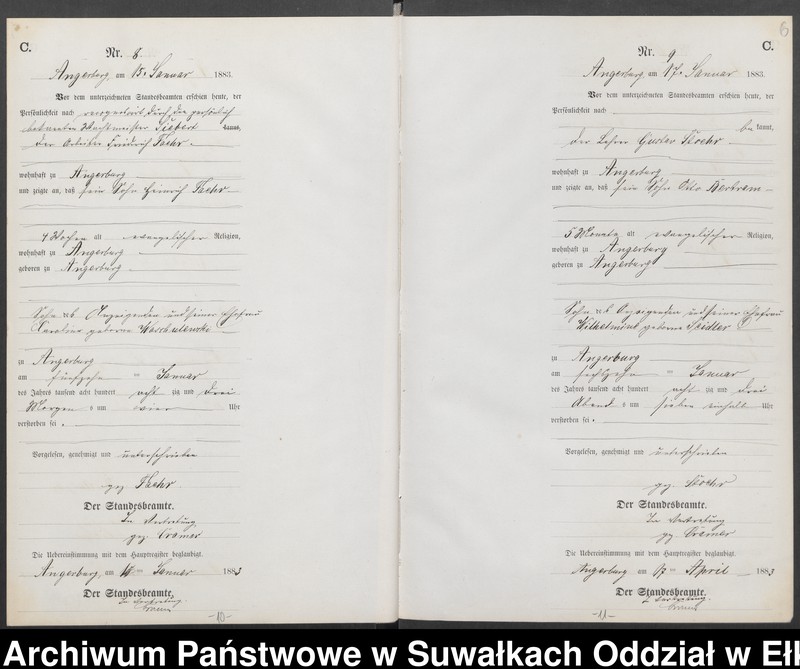 C.
Nr. 8.
Angerburg, am 15. Januar 1883.
Vor dem unterzeichneten Standesbeamten erschien heute, der
Persönlichkeit nach durch den persönlich
bekannten Wachtmeister Siebert kannt,
der Arbeiter Friedrich
wohnhaft zu Angerburg
und zeigte an, daß sein Sohn Heinrich
4 Wochen alt evangelischer Religion,
wohnhaft zu Angerburg
geboren zu Angerburg
Sohn des Anzeigenden und seiner Ehefrau
Caroline geborne
zu Angerburg
am fünfzehn ten Januar
des Jahres tausend acht hundert acht zig und drei
Morgens um vier Uhr
verstorben sei.
Vorgelesen, genehmigt und unterschrieben
gez.
Der Standesbeamte.
In Vertretung
gez. Cramer
Die Uebereinstimmung mit dem Hauptregister beglaubigt.
Angerburg, am ten Januar 1883
Der Standesbeamte.
In Vertretung.
Cramer
-10-
6
C.
Nr. 9
Angerburg am 17. Januar 1883.
Vor dem unterzeichneten Standesbeamten erschien heute, der
Persönlichkeit nach
be kannt,
der Lehrer Gustav
wohnhaft zu Angerburg
und zeigte an, daß sein Sohn Otto Bertram
5 Monate alt evangelischer Religion,
wohnhaft zu Angerburg
geboren zu Angerburg
Sohn des Anzeigenden und seiner Ehefrau
Wilhelmine geborne Seidler
zu Angerburg
am sechzehn ten Januar
des Jahres tausend acht hundert acht zig und drei
Abends um sieben einhalb Uhr
verstorben sei.
Vorgelesen, genehmigt und unterschrieben
gez.
Der Standesbeamte.
In Vertretung
gez. Cramer
Die Uebereinstimmung mit dem Hauptregister beglaubigt.
Angerburg am April 1883
Der Standesbeamte.
In Vertretung.
Cramer
-11-
Archiwum Państwowe w Suwałkach Oddział w Eł